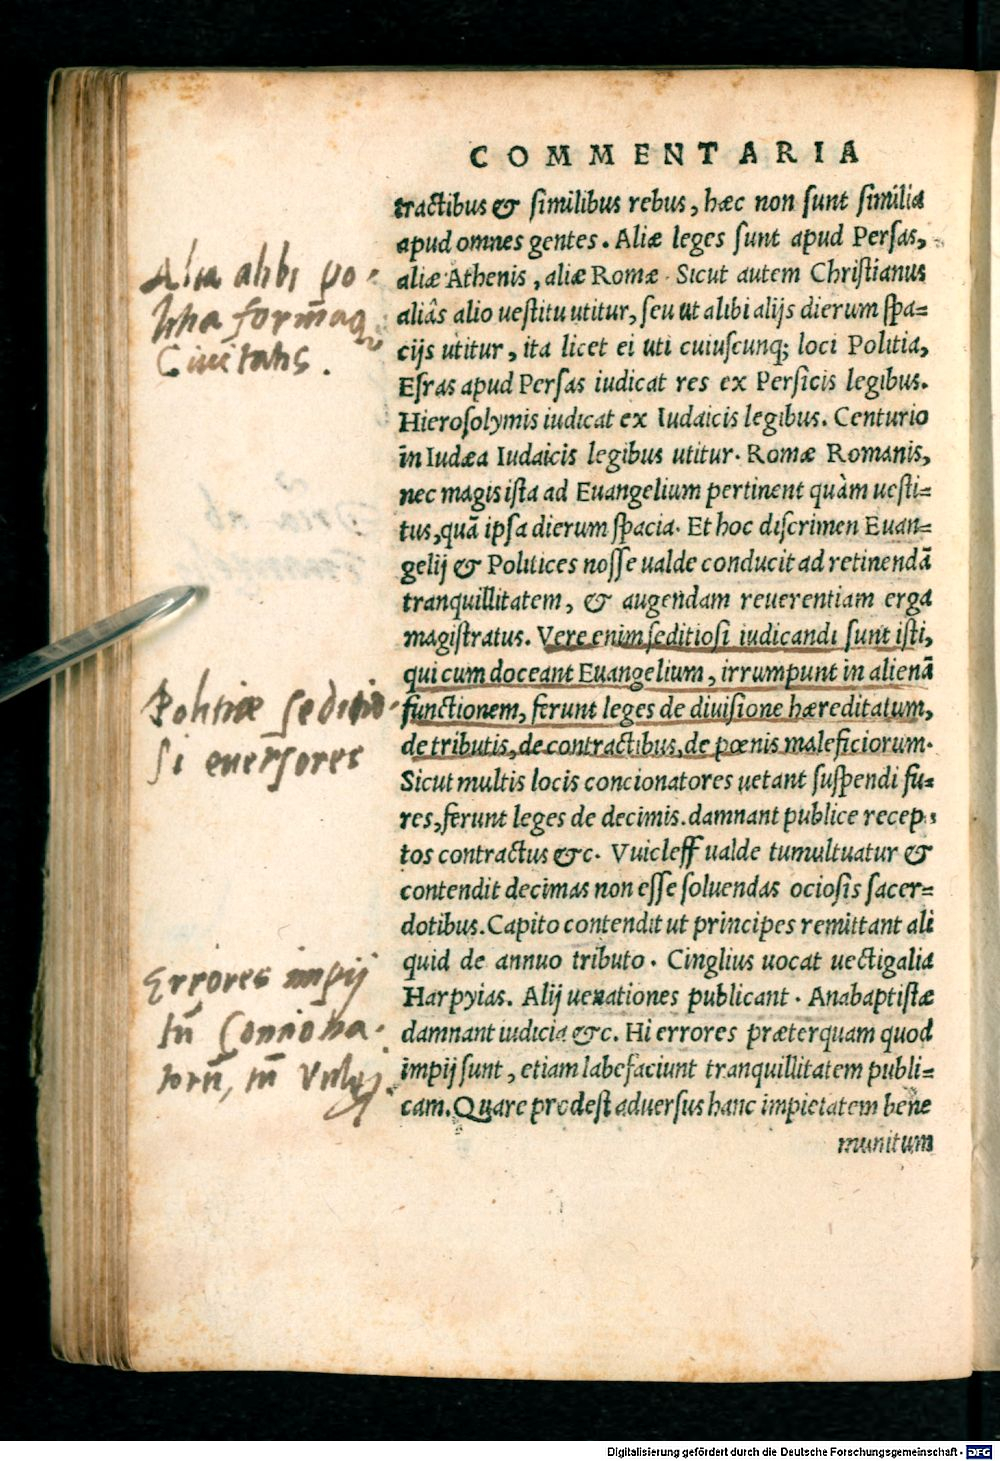 COMMENTARIA
tractibus & ſimilibus rebus, hæc non ſunt ſimilia
apud omnes gentes. Aliæ leges ſunt apud Perſas,
aliæ Athenis, aliæ Romæ. Sicut autem Chriſtianus
aliâs alio ueſtitu utitur, ſeu ut alibi alijs dierum ſpa=
cijs utitur, ita licet ei uti cuiuſcunq; loci Politia,
Eſras apud Perſas iudicat res ex Perſicis legibus.
Hieroſolymis iudicat ex Iudaicis legibus. Centurio
in Iudæa Iudaicis legibus utitur. Romæ Romanis,
nec magis iſta ad Euangelium pertinent quàm ueſti=
tus, quã ipſa dierum ſpacia. Et hoc diſcrimen Euan=
gelij & Politices noſſe ualde conducit ad retinendã
tranquillitatem, & augendam reuerentiam erga
magiſtratus. Vere enim ſeditioſi iudicandi ſunt iſti,
qui cum doceant Euangelium, irrumpunt in alienã
functionem, ferunt leges de diuiſione hæreditatum,
de tributis, de contractibus, de pœnis maleficiorum.
Sicut multis locis concionatores uetant ſuſpendi fu=
res, ferunt leges de decimis. damnant publice recep=
tos contractus &c. Vuicleff ualde tumultuatur &
contendit decimas non eſſe ſoluendas ocioſis ſacer=
dotibus. Capito contendit ut principes remittant ali
quid de annuo tributo. Cinglius uocat uectigalia
Harpyias. Alij uenationes publicant. Anabaptiſtæ
damnant iudicia &c. Hi errores præterquam quod
impij ſunt, etiam labefaciunt tranquillitatem publi=
cam. Quare prodeſt aduersus hanc impietatem bene
munitum
Alia alibi po-
litia formaq
Civitatis.
Politiæ seditio-
si eversores
Errores impij
tũ Conciona-
torũ, tũ Vulgi.
Digitalisierung gefördert durch die Deutsche Forschungsgemeinschaft - DFG